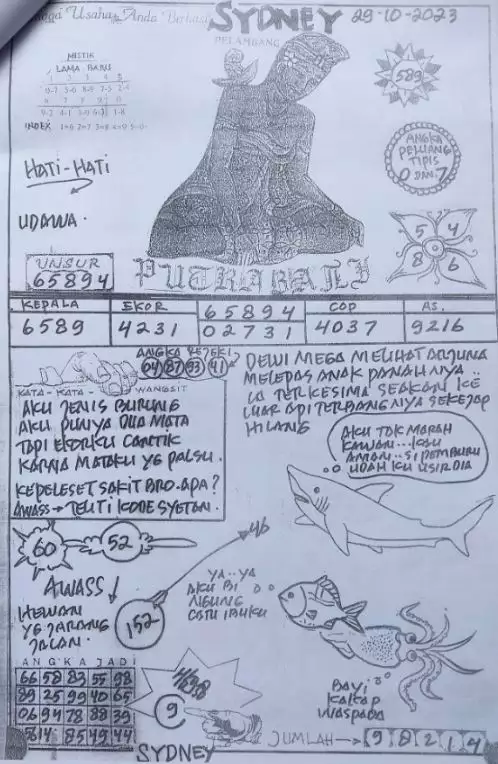 Usaha Anda Berhasil
SYDNEY 29-10-2023
PELAMBANG
MISTIK
LAMA BARU
0-7 5-6 8-9 7-5 2-4
INDEX 1=6 2=7 3=8 4=9 5=0
589
ANGKA
PELUANG
TIPIS
0 DAN 7
HATI-HATI
UDAWA.
5 4
8 6
UNSUR
65894
PUTRA BALI
KEPALA EKOR 65894 COP AS.
6589 4231 02731 4037 9216
ANGKA REJEKI
64 87 93 41
KATA-KATA WANGSIT
AKU JENIS BURUNG
AKU PUNYA DUA MATA
TAPI EKORKU CANTIK
KARNA MATAKU YG PALSU.
KEPELESET SAKIT BRO. APA?
AWASS → TELITI KODE SYETAN.
DEWI MEGA MELIHAT ARJUNA
MELEPAS ANAK PANAHNYA..
IA TERKESIMA SEAKAN KE
LUAR API TERBANGNYA SEKEJAP
HILANG
AKU TAK MARAH
KAWAN...KAU
AMAN..SI PEMBURU
UDAH KU USIR DIA
60
52
46
AWASS!
HEWAN
YG JARANG
JALAN.
152
YA..YA
AKU BI
NGUNG
CATU IBUKU
BAYI
KAKAP
WASPADA
ANGKA JADI
66 58 83 55 98
89 25 99 40 65
06 94 78 88 39
5614 85 49 44
9
SYDNEY
JUMLAH → 9 8 2 1 4